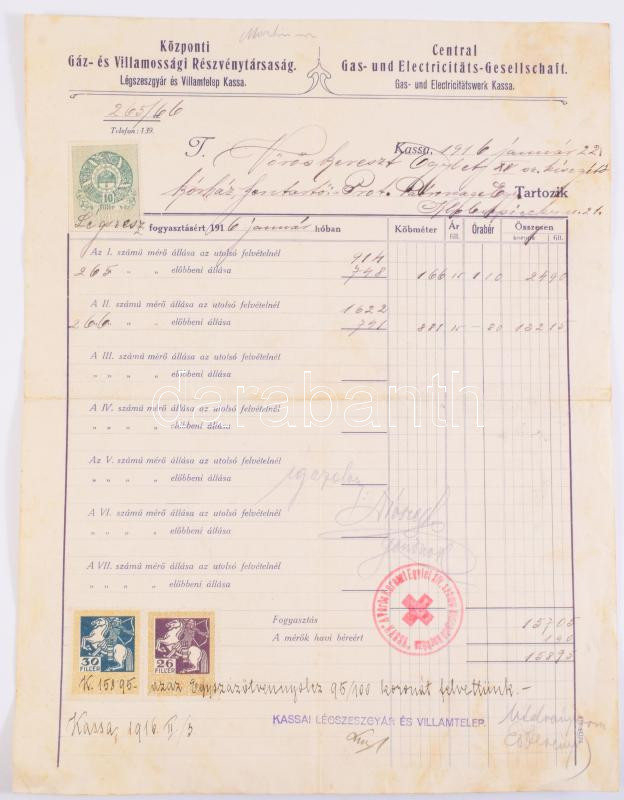 Központi
Gáz- és Villamossági Részvénytársaság.
Légszeszgyár és Villamtelep Kassa.
Central
Gas- und Electricitäts-Gesellschaft.
Gas- und Electricitätswerk Kassa.
265/66
Telefon: 139.
Kassa, 1916 január 22
T. Vöröskereszt Egylet
kórház, Tartozik
10
Légszesz fogyasztásért 1916 január hóban
Köbméter Ár fill. Órabér Összesen korona fill.
Az I. számú mérő állása az utolsó felvételnél 914
265 " " előbbeni állása 748 166 15 1 10 24 90
A II. számú mérő állása az utolsó felvételnél 1622
266 " " előbbeni állása 741 881 15 - 80 132 15
A III. számú mérő állása az utolsó felvételnél
" " " " előbbeni állása
A IV. számú mérő állása az utolsó felvételnél
" " " " előbbeni állása
Az V. számú mérő állása az utolsó felvételnél
" " " " előbbeni állása
igazolom
A VI. számú mérő állása az utolsó felvételnél
" " " " előbbeni állása
A VII. számú mérő állása az utolsó felvételnél
" " " " előbbeni állása
darabanth
Fogyasztás 157 05
A mérők havi béreért 1 90
158 95
30
FILLÉR
26
FILLÉR
K. 158.95 azaz Egyszázötvennyolcz 95/100 koronát felvettünk.-
Kassa, 1916 II/3
KASSAI LÉGSZESZGYÁR ÉS VILLAMTELEP.